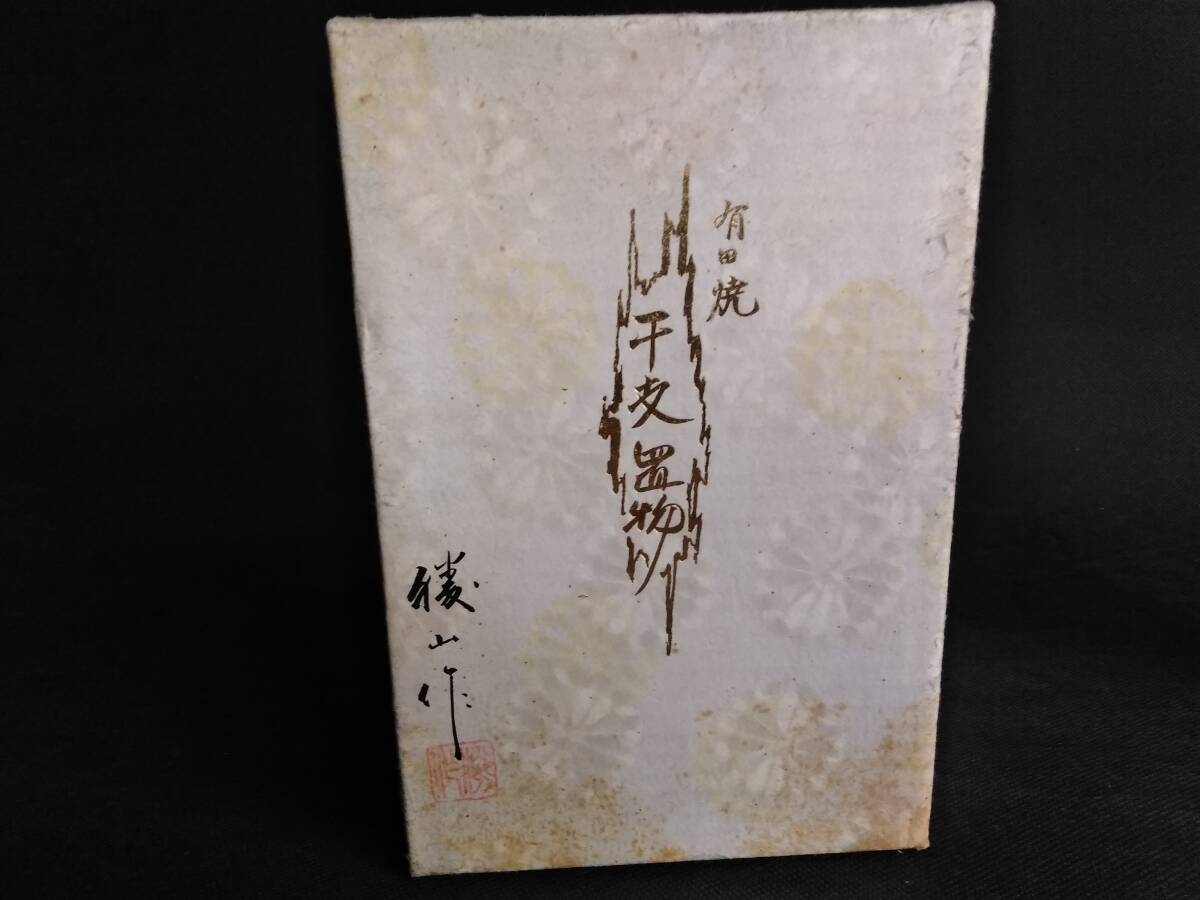 有田焼
干支置物
勝山作